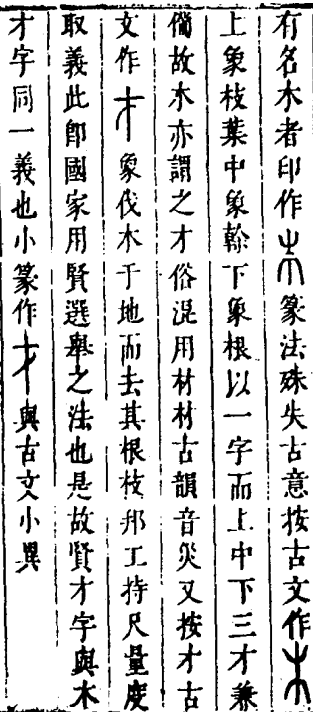 有名木者印作篆法殊失古意按古文作
上象枝葉中象榦下象根以一字而上中下三才兼
備故木亦謂之才俗混用材材古韻音災又按才古
文作象伐木于地而去其根枝邦工持尺量度
取義此卽國家用賢選舉之法也是故賢才字與木
才字同一義也小篆作與古文小異